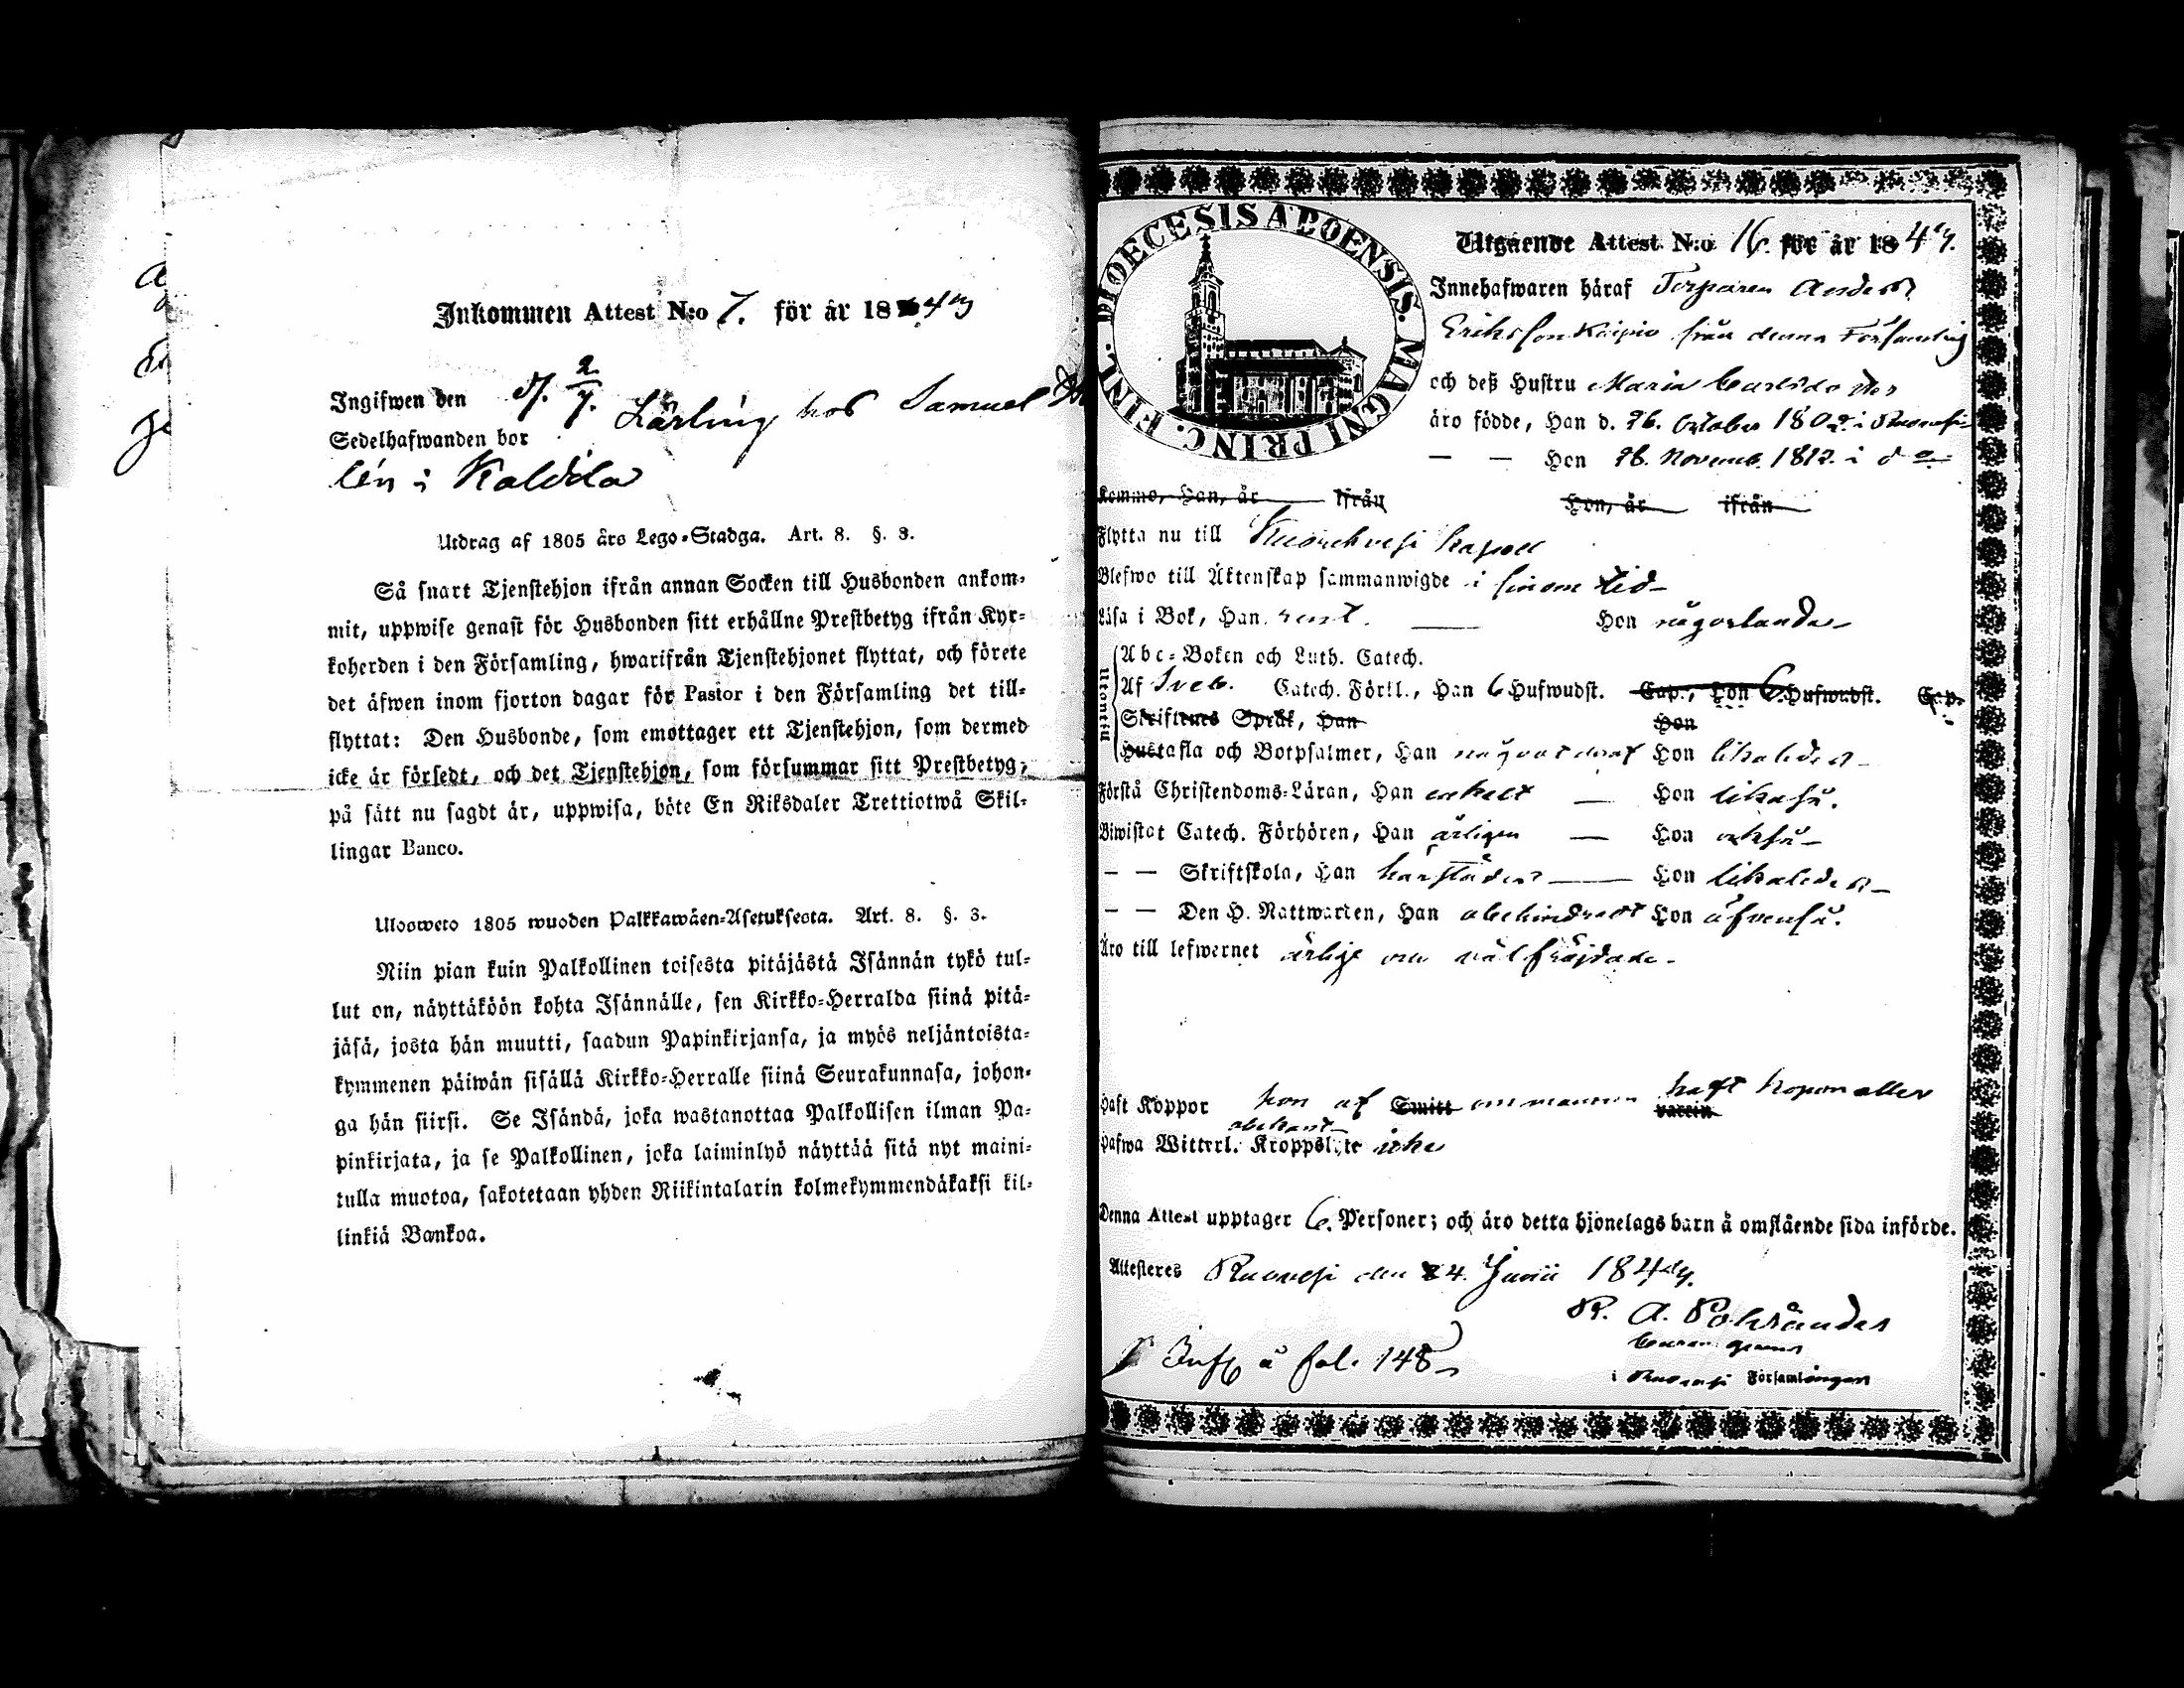 Inkommen Attest N:o 7. för år 184
Ingifwen den d. 2/7. Lärling hos Samuel
Sedelhafwanden bor
lén i Kaldila
Utdrag af 1805 års Lego-Stadga. Art. 8. §. 3.
Så snart Tjenstehjon ifrån annan Socken till Husbonden ankom-
mit, uppwise genast för Husbonden sitt erhållne Prestbetyg ifrån Kyr-
koherden i den Församling, hwarifrån Tjenstehjonet flyttat, och förete
det äfwen inom fjorton dagar för Pastor i den Församling det till-
flyttat: Den Husbonde, som emottager ett Tjenstehjon, som dermed
icke är försedt, och det Tjenstehjon, som försummar sitt Prestbetyg,
på sätt nu sagdt är, uppwisa, böte En Riksdaler Trettiotwå Skil-
lingar Banco.
Ulosweto 1805 wuoden Palkkawäen-Asetuksesta. Art. 8. §. 3.
Niin pian kuin Palkollinen toisesta pitäjästä Isännän tykö tul-
lut on, näyttäköön kohta Isännälle, sen Kirkko-Herralda siinä pitä-
jäsä, josta hän muutti, saadun Papinkirjansa, ja myös neljäntoista-
kymmenen päiwän sisällä Kirkko-Herralle siinä Seurakunnasa, johon-
ga hän siirsi. Se Isändä, joka wastanottaa Palkollisen ilman Pa-
pinkirjata, ja se Palkollinen, joka laiminlyö näyttää sitä nyt maini-
tulla muotoa, sakotetaan yhden Riikintalarin kolmekymmendäkaksi kil-
linkiä Bankoa.
DIOECESIS ABOENSIS. MAGNI PRINC. FINL.
Utgående Attest N:o 16. för år 184
Innehafwaren häraf Torparen Anders
Eriksson Kaipio från denna Församling
och deß Hustru Maria Carlsdotter
äro födde, Han d. 26. October 1802 i Ruovesi
— — Hon 26. Novemb. 1812. i do
Kommo, Han, år ifrån Hon, år ifrån
Flytta nu till Kuorehvesi Kapell
Blefwo till Äktenskap sammanwigde i sinom tid
Läsa i Bok, Han rent. — Hon någorlunda
Abc-Boken och Luth. Catech.
Utantill Af Sveb. Catech. Förkl., Han 6 Hufwudst. Cap., Hon 6 Hufwudst. Cap.
Skriftenes Språk, Han Hon
Hustafla och Botpsalmer, Han något deraf Hon likaledes
Förstå Christendoms-Läran, Han enkelt — Hon likaså.
Biwistat Catech. Förhören, Han årligen — Hon också
— — Skriftskola, Han härstädes — Hon likaledes
— — Den H. Nattwarden, Han obehindradt Hon äfvenså.
Äro till lefwernet ärlige och välfräjdade
Haft Koppor hon af Smitt om mannen haft koppor eller vaccin
obekant
Hafwa Witterl. Kroppslyte icke
Denna Attest upptager 6. Personer; och äro detta hjonelags barn å omstående sida införde.
Attesteres Ruovesi den 24. Junii 184
R. A. Polviander
i Ruovesi Församlingen
Inf. å fol. 148